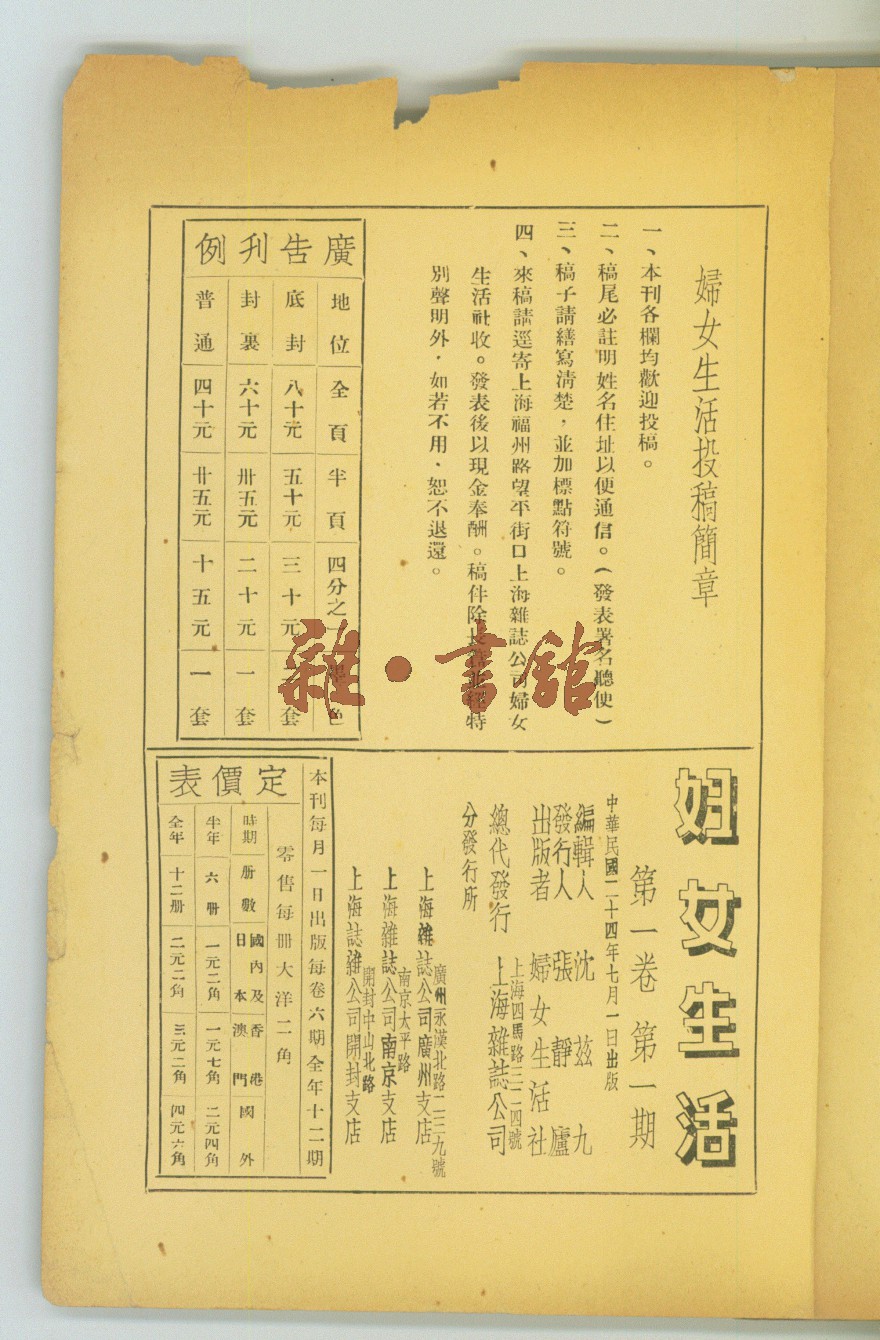 婦女生活投稿簡章
一、本刊各欄均歡迎投稿。
二、稿尾必註明姓名住址以便通信。(發表署名聽便)
三、稿子請繕寫清楚，並加標點符號。
四、來稿請逕寄上海福州路望平街口上海雜誌公司婦女
生活社收。發表後以現金奉酬。稿件除長 特
別聲明外，如若不用，恕不退還。
廣告刊例
地位 全頁 半頁 四分之一 色
底封 八十元 五十元 三十元 套
封裏 六十元 卅五元 二十元 一套
普通 四十元 廿五元 十五元 一套
雜·書館
婦女生活
第一卷 第一期
中華民國二十四年七月一日出版
編輯人 沈茲九
發行人 張靜廬
出版者 婦女生活社
上海四馬路三二四號
總代發行 上海雜誌公司
分發行所
廣州永漢北路二三九號
上海雜誌公司廣州支店
南京太平路
上海雜誌公司南京支店
開封中山北路
上海誌雜公司開封支店
定價表
本刊每月一日出版每卷六期全年十二期
零售每冊大洋二角
時期 册數 國內及日本 香港澳門 國外
半年 六册 一元二角 一元七角 二元四角
全年 十二册 二元二角 三元二角 四元六角